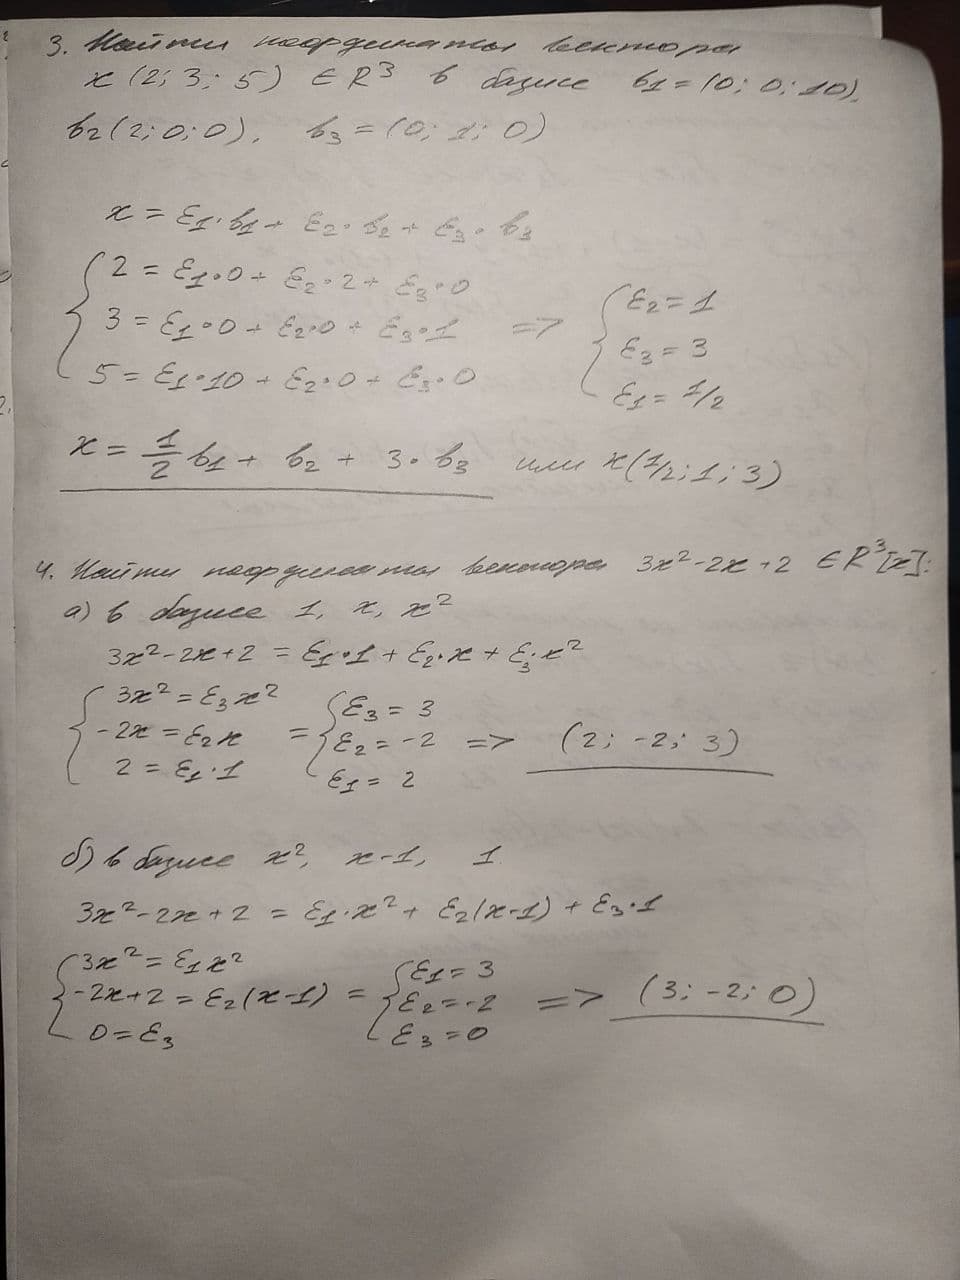 3. Найти координаты вектора
x (2; 3; 5) ∈ R³ в базисе b₁ = (0; 0; 10),
b₂ (2; 0; 0), b₃ = (0; 1; 0)
x = ε₁·b₁ + ε₂·b₂ + ε₃·b₃
2 = ε₁·0 + ε₂·2 + ε₃·0
3 = ε₁·0 + ε₂·0 + ε₃·1 => { ε₂ = 1
5 = ε₁·10 + ε₂·0 + ε₃·0 ε₃ = 3
ε₁ = 1/2
x = 1/2 b₁ + b₂ + 3·b₃ или x (1/2; 1; 3)
4. Найти координаты вектора 3x²-2x+2 ∈ R³[x]:
а) в базисе 1, x, x²
3x²-2x+2 = ε₁·1 + ε₂·x + ε₃·x²
3x² = ε₃x² ε₃ = 3
-2x = ε₂x = ε₂ = -2 => (2; -2; 3)
2 = ε₁·1 ε₁ = 2
б) в базисе x², x-1, 1
3x²-2x+2 = ε₁·x² + ε₂(x-1) + ε₃·1
3x² = ε₁x² ε₁ = 3
-2x+2 = ε₂(x-1) = ε₂ = -2 => (3; -2; 0)
0 = ε₃ ε₃ = 0